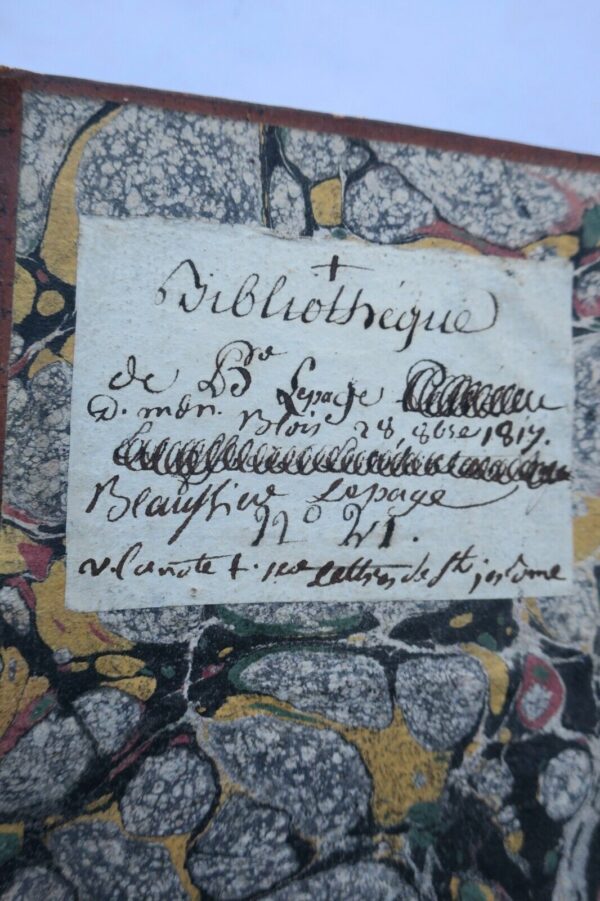 †
Bibliothéque
de Bre Lepage
D. mdn. Blois 28, 8bre 1817.
Beaussieu Lepage
No 21.
v. la note †. sur lettres de St. jérôme